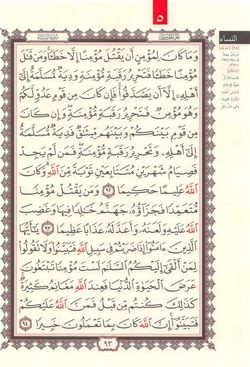 ٥
النساء
وَمَا كَانَ لِمُؤْمِنٍ أَن يَقْتُلَ مُؤْمِنًا إِلَّا خَطَـًٔا وَمَن قَتَلَ
مُؤْمِنًا خَطَـًٔا فَتَحْرِيرُ رَقَبَةٍ مُّؤْمِنَةٍ وَدِيَةٌ مُّسَلَّمَةٌ إِلَىٰٓ
أَهْلِهِۦٓ إِلَّآ أَن يَصَّدَّقُوا۟ فَإِن كَانَ مِن قَوْمٍ عَدُوٍّ لَّكُمْ
وَهُوَ مُؤْمِنٌ فَتَحْرِيرُ رَقَبَةٍ مُّؤْمِنَةٍ وَإِن كَانَ
مِن قَوْمٍۭ بَيْنَكُمْ وَبَيْنَهُم مِّيثَٰقٌ فَدِيَةٌ مُّسَلَّمَةٌ
إِلَىٰٓ أَهْلِهِۦ وَتَحْرِيرُ رَقَبَةٍ مُّؤْمِنَةٍ فَمَن لَّمْ يَجِدْ
فَصِيَامُ شَهْرَيْنِ مُتَتَابِعَيْنِ تَوْبَةً مِّنَ ٱللَّهِ وَكَانَ
ٱللَّهُ عَلِيمًا حَكِيمًا ٩٢ وَمَن يَقْتُلْ مُؤْمِنًا
مُّتَعَمِّدًا فَجَزَآؤُهُۥ جَهَنَّمُ خَٰلِدًا فِيهَا وَغَضِبَ
ٱللَّهُ عَلَيْهِ وَلَعَنَهُۥ وَأَعَدَّ لَهُۥ عَذَابًا عَظِيمًا ٩٣ يَٰٓأَيُّهَا
ٱلَّذِينَ ءَامَنُوٓا۟ إِذَا ضَرَبْتُمْ فِى سَبِيلِ ٱللَّهِ فَتَبَيَّنُوا۟ وَلَا تَقُولُوا۟
لِمَنْ أَلْقَىٰٓ إِلَيْكُمُ ٱلسَّلَٰمَ لَسْتَ مُؤْمِنًا تَبْتَغُونَ
عَرَضَ ٱلْحَيَوٰةِ ٱلدُّنْيَا فَعِندَ ٱللَّهِ مَغَانِمُ كَثِيرَةٌ
كَذَٰلِكَ كُنتُم مِّن قَبْلُ فَمَنَّ ٱللَّهُ عَلَيْكُمْ
فَتَبَيَّنُوٓا۟ إِنَّ ٱللَّهَ كَانَ بِمَا تَعْمَلُونَ خَبِيرًا ٩٤
٩٣